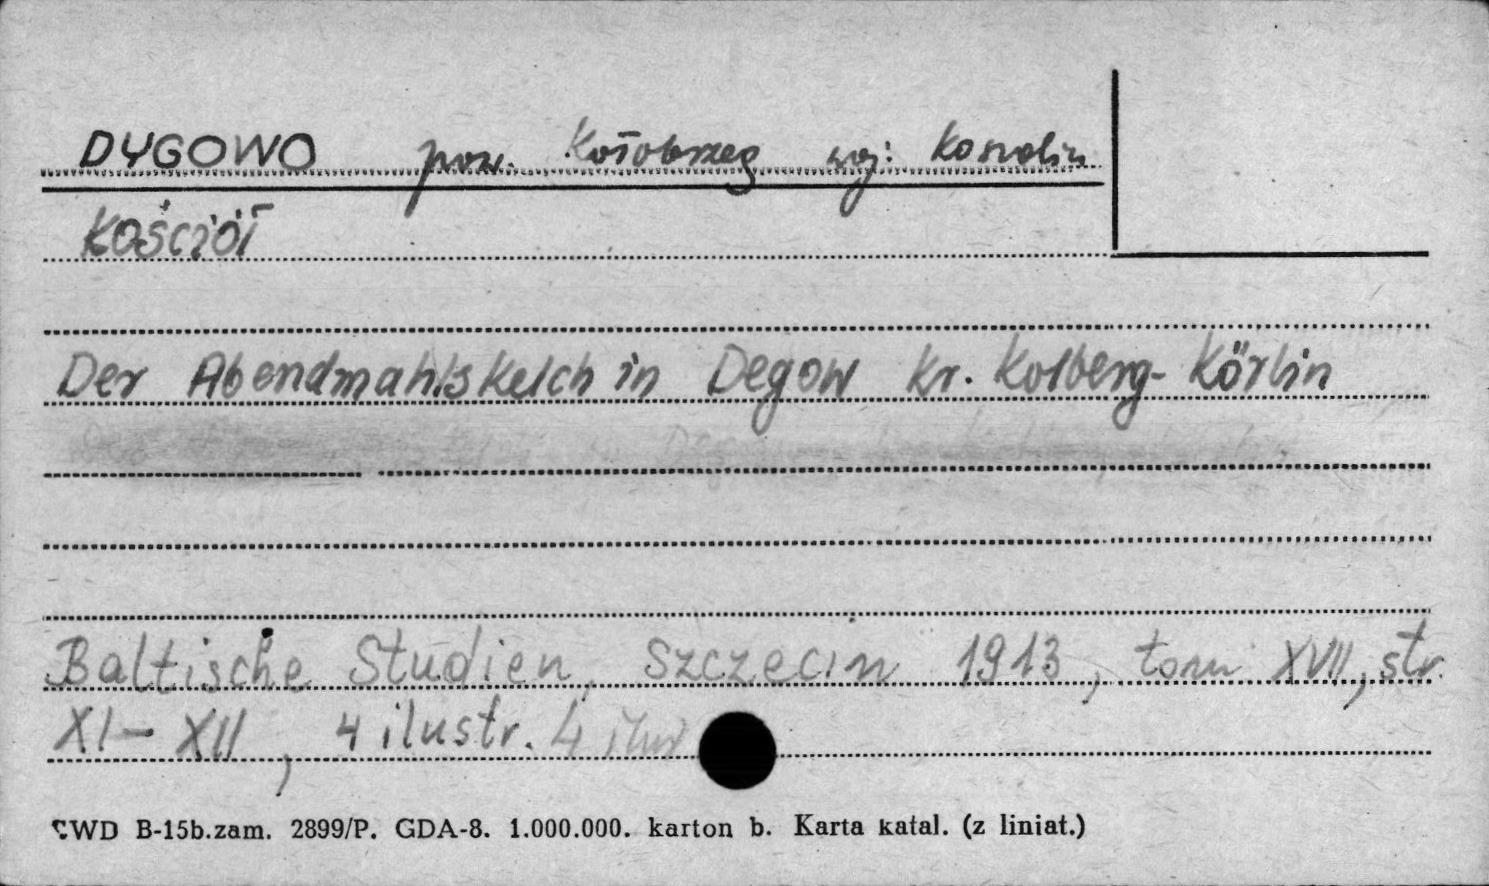 DYGOWO pow. Kołobrzeg woj: Koszalin
Kościół
Der Abendmahlskelch in Degow Kr. Kolberg-Körlin
Baltische Studien, Szczecin 1913, tom XVII, str.
XI-XII, 4 ilustr. 4 ilus
CWD B-15b.zam. 2899/P. GDA-8. 1.000.000. karton b. Karta katal. (z liniat.)